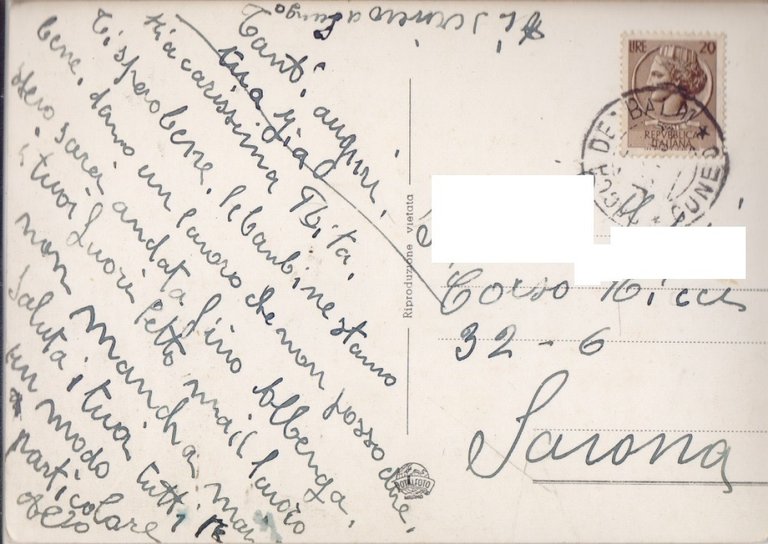 Ti scriverò a lungo
Tanti auguri,
tua zia
Mia carissima Rita,
Ti spero bene, le bambine stanno
bene, danno un lavoro che non posso dire,
sarei andata fino Albenga,
i tuoi fuori letto ma il lavoro
non manca mai
Saluta i tuoi tutti
in modo
particolare
LIRE 20
REPVBBLICA
ITALIANA
CUNEO
Riproduzione vietata
Corso Ricci
32-6
Savona
ROTALFOTO
MILANO